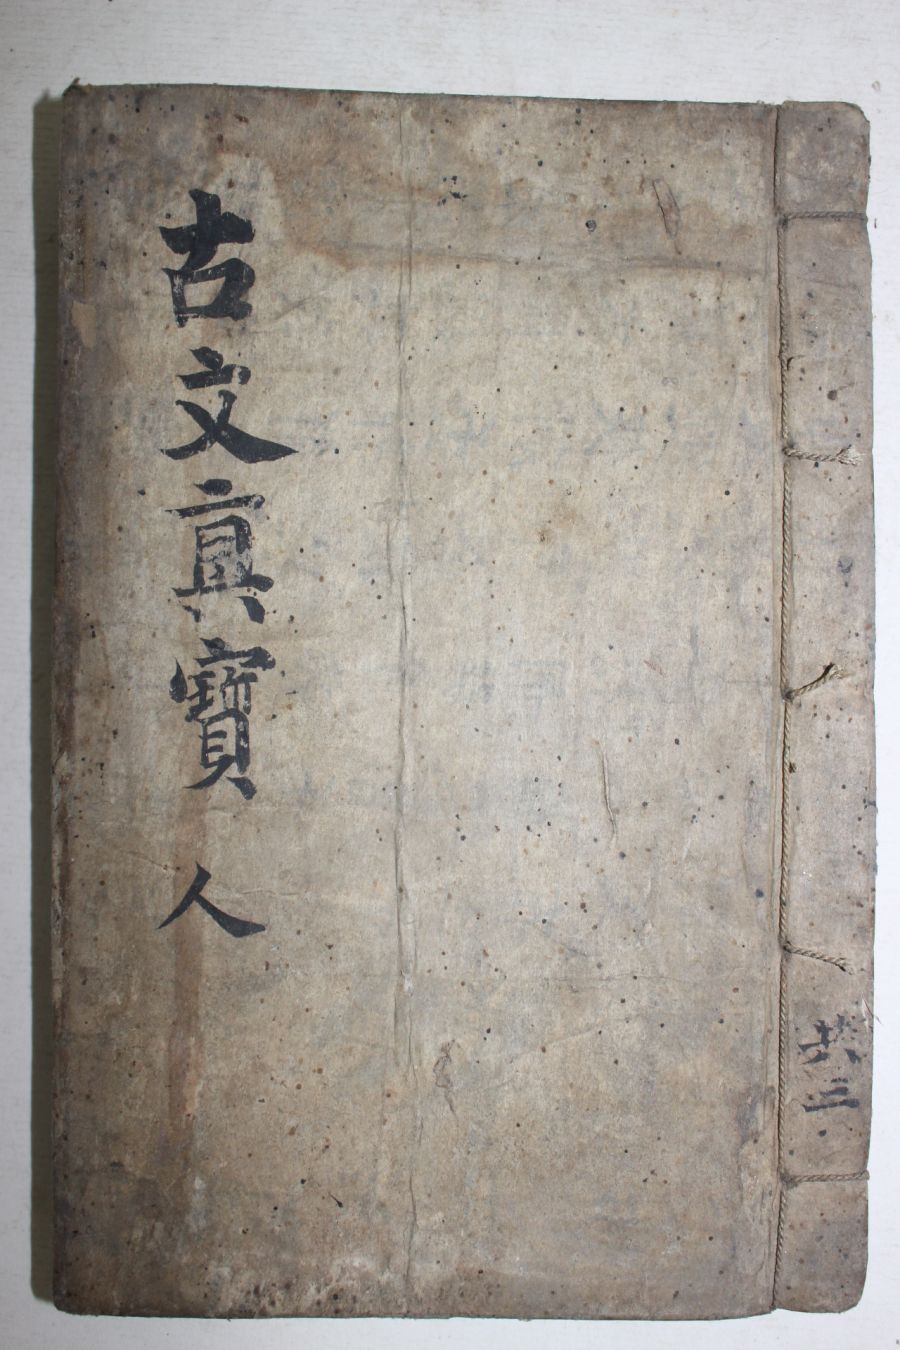 共三
古文眞寶 人